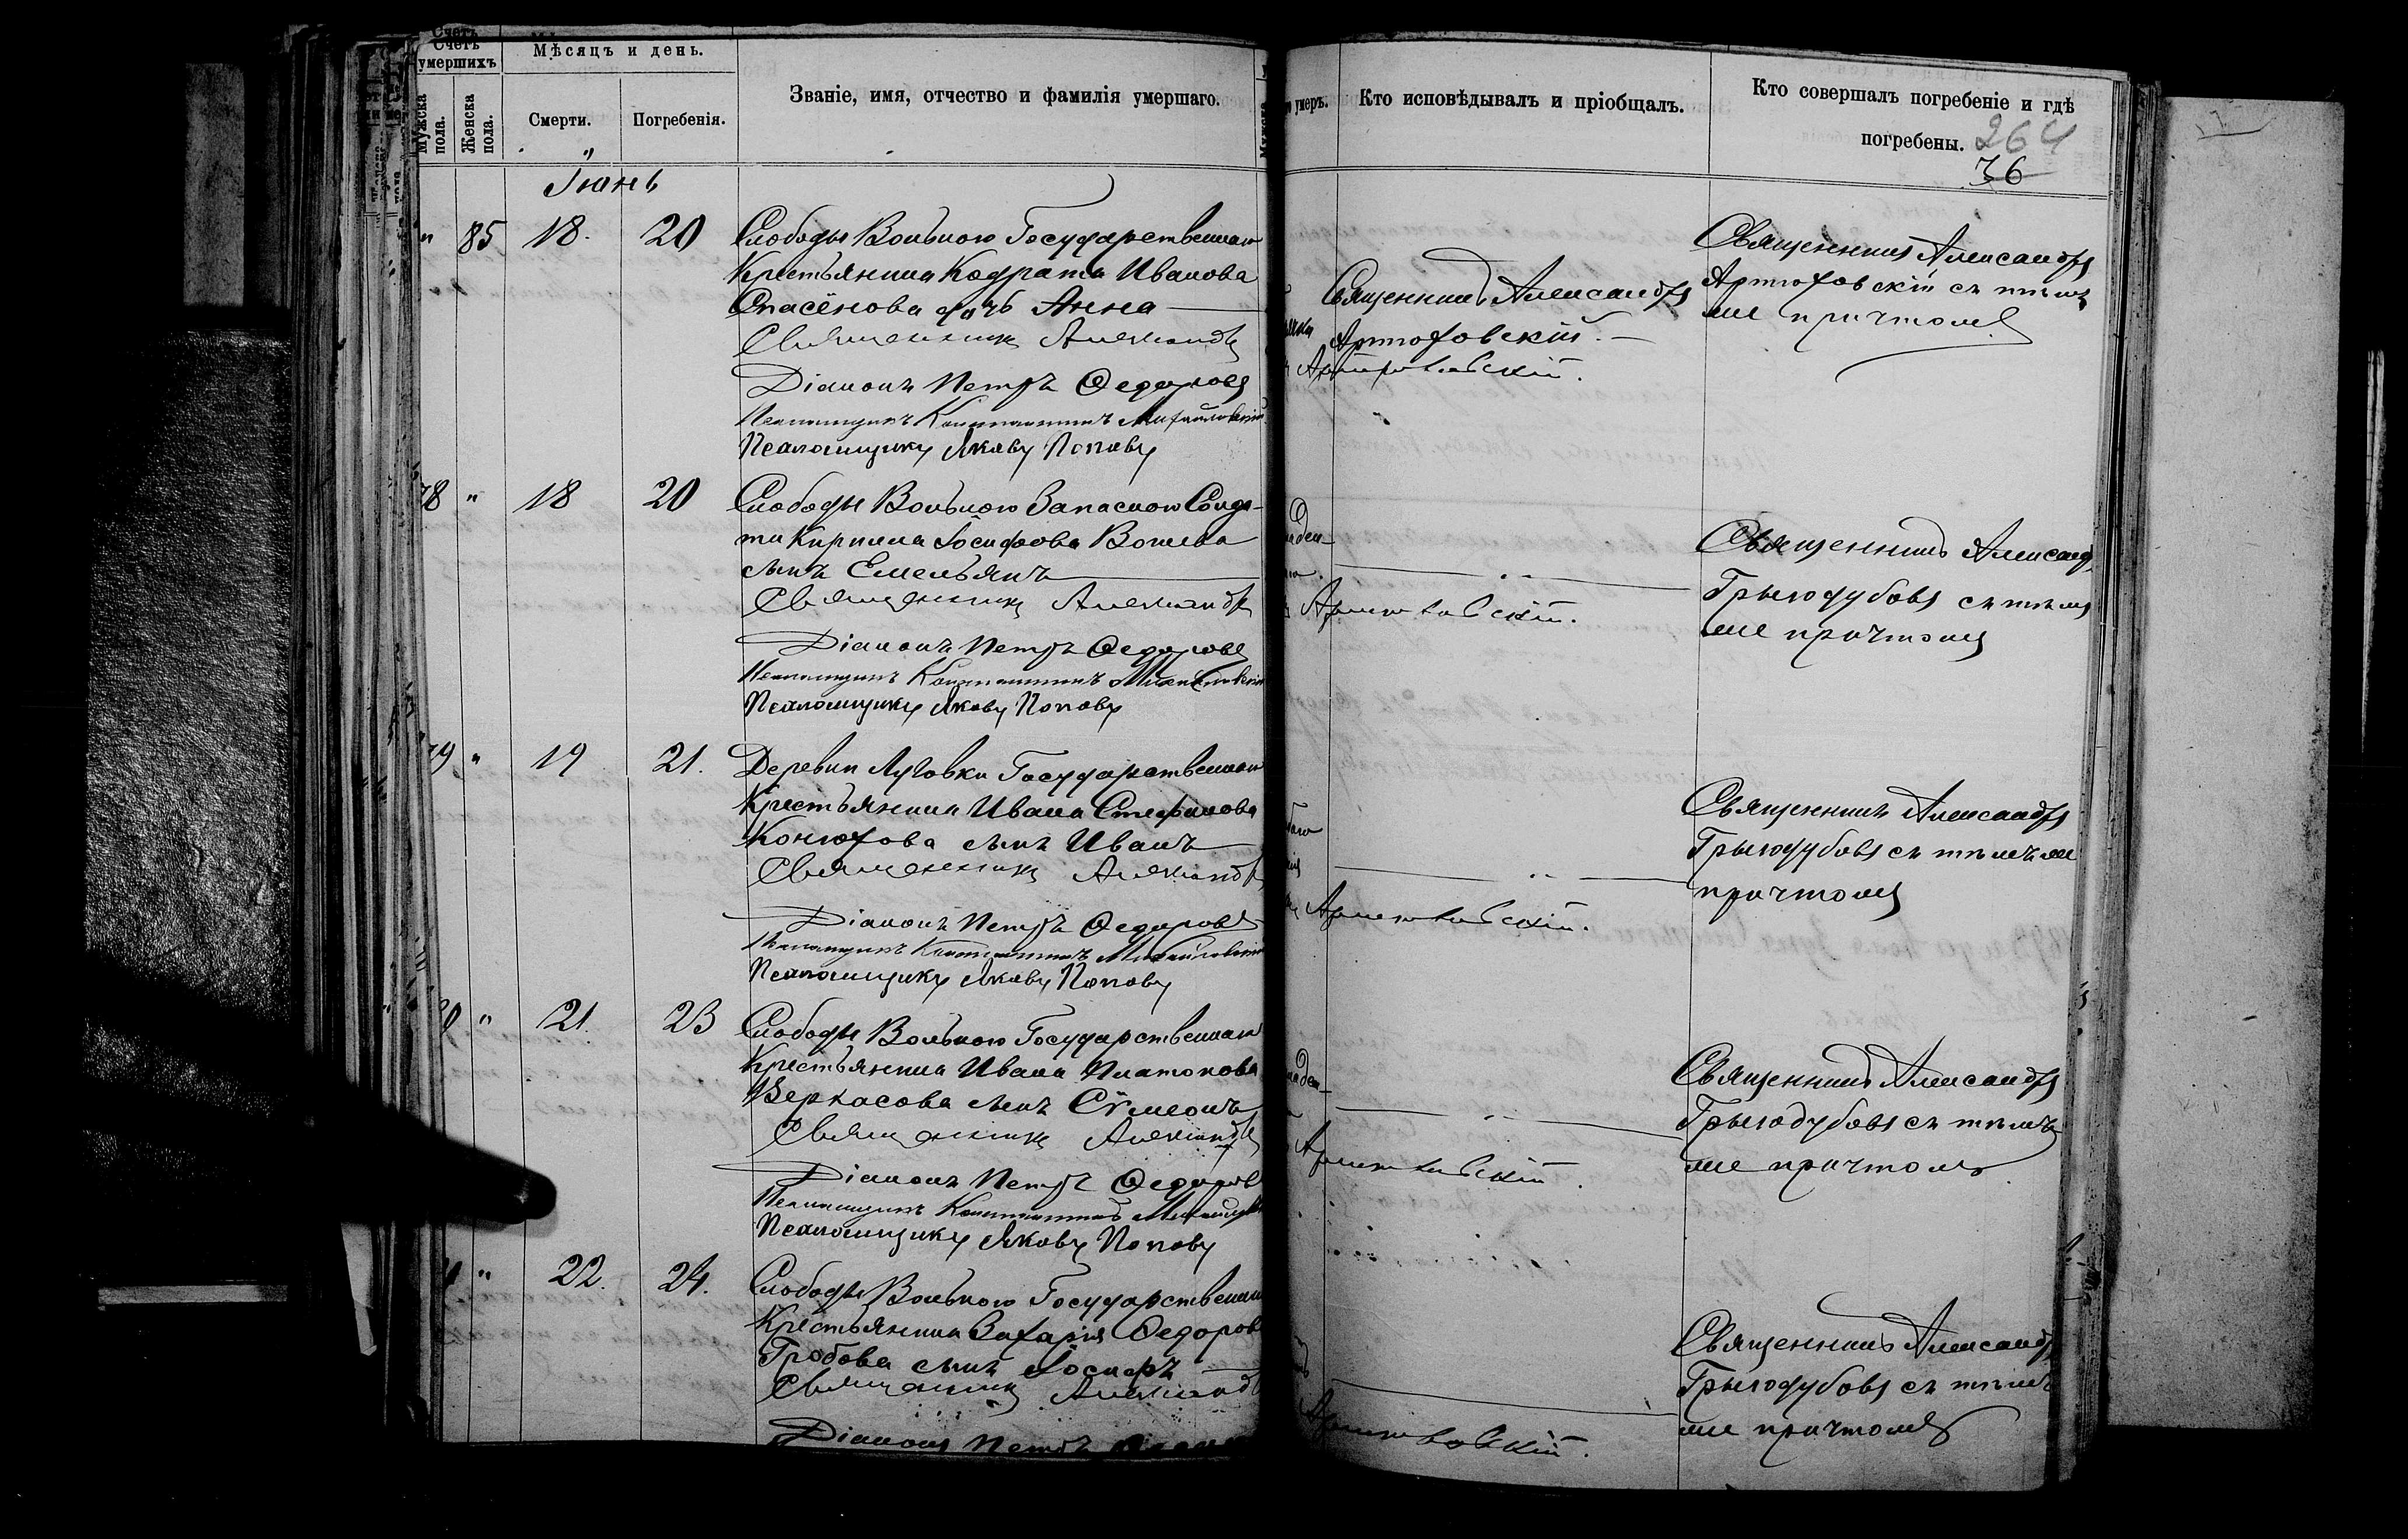 Счетъ умершихъ
Мѣсяцъ и день.
Званіе, имя, отчество и фамилія умершаго.
Мужска пола.
Женска пола.
Смерти.
Погребенія.
Іюнь
" 85 18. 20
Слободы Вольного Государственнаго
Крестьянина Кодрата Иванова
Спасёнова дочь Анна
Священникъ Александръ
Діаконъ Петръ Ѳедоровъ
Псаломщикъ Константинъ Михайловскій
Псаломщикъ Яковъ Поповъ
78 " 18 20
Слободы Вольного Запасного Солда-
та Кирилла Іосифова
сынъ Емельянъ
Священникъ Александръ
Діаконъ Петръ Ѳедоровъ
Псаломщикъ Константинъ Михайловскій
Псаломщикъ Яковъ Поповъ
79 " 19 21.
Деревни Луговки Государственнаго
Крестьянина Ивана Стефанова
Конюхова сынъ Иванъ
Священникъ Александръ
Діаконъ Петръ Ѳедоровъ
Псаломщикъ Константинъ Михайловскій
Псаломщикъ Яковъ Поповъ
" 21. 23
Слободы Вольного Государственнаго
Крестьянина Ивана Платонова
Веркасова сынъ Сѵмеонъ
Священникъ Александръ
Діаконъ Петръ Ѳедоровъ
Псаломщикъ Константинъ
Псаломщикъ Яковъ Поповъ
" 22. 24.
Слободы Вольного Государственнаго
Крестьянина Захарія Ѳедорова
Гробова сынъ Іосифъ
Священникъ Александръ
Діаконъ Петръ
умеръ.
Кто исповѣдывалъ и пріобщалъ.
Кто совершалъ погребеніе и гдѣ
погребены. 264
36
Священникъ Александръ
Артюховскій.
Артюховскій.
Священникъ Александръ
Артюховскій съ тѣмъ
же причтомъ
Артюховскій.
Священникъ Александ.
Грыгодубовъ съ тѣмъ
же причтомъ
Артюховскій.
Священникъ Александръ
Грыгодубовъ съ тѣмъ же
причтомъ
Артюховскій.
Священникъ Александръ
Грыгодубовъ съ тѣмъ
же причтомъ
Артюховскій.
Священникъ Александръ
Грыгодубовъ съ тѣмъ
же причтомъ